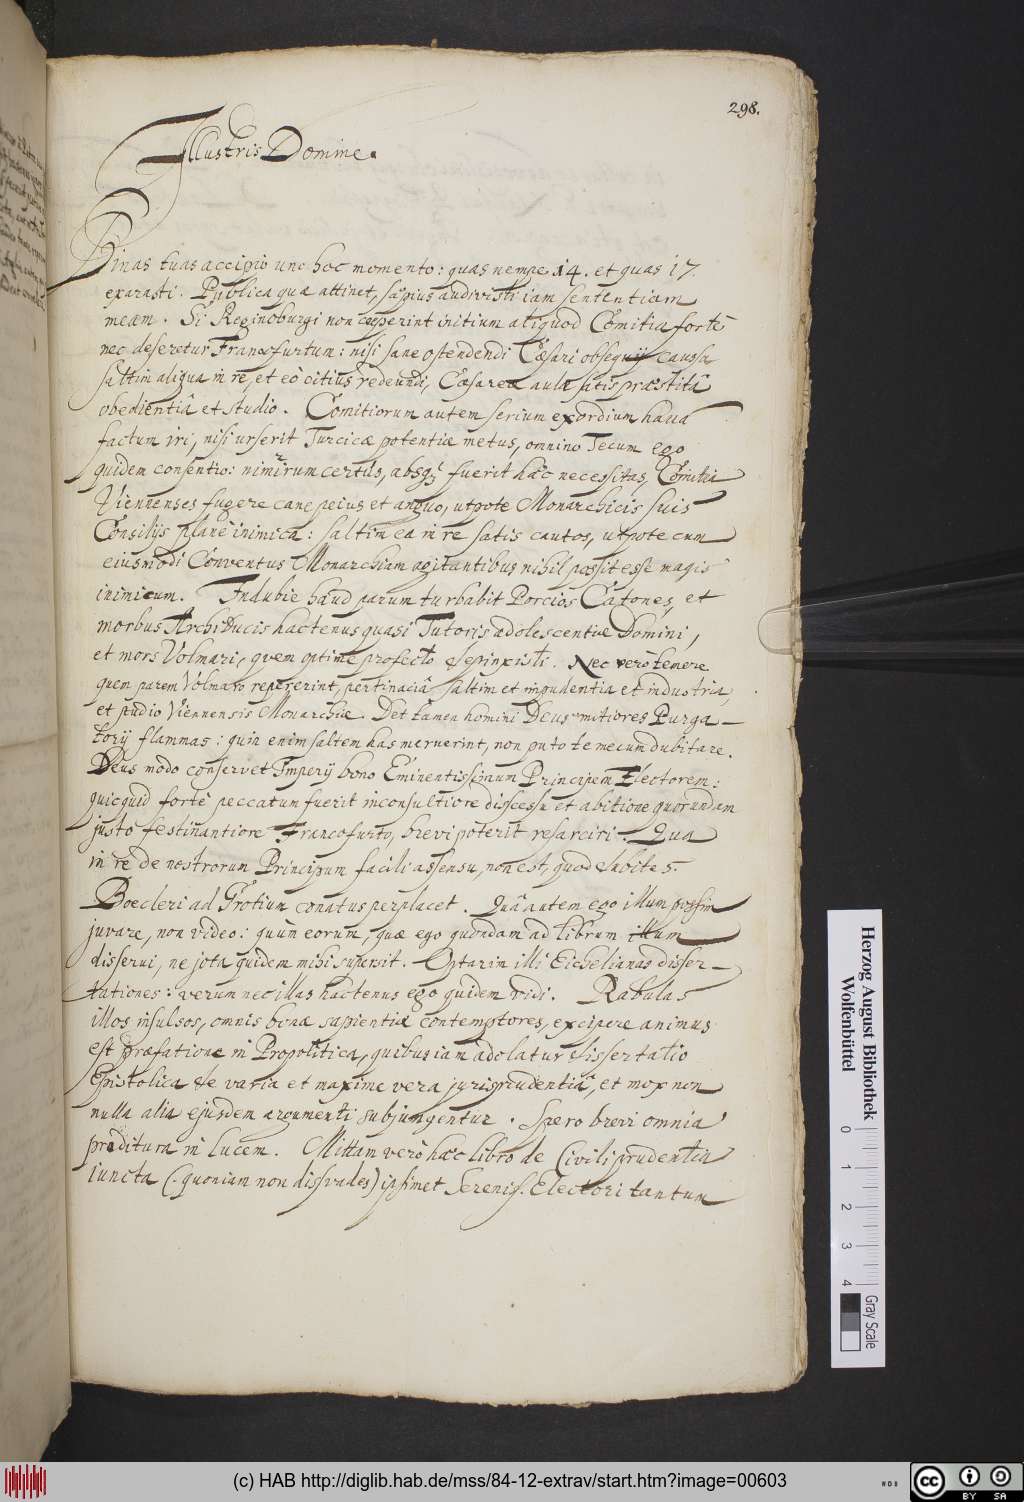 298.
Illustris Domine.
Binas tuas accipio uno hoc momento: quas nempe 14. et quas 17.
exarasti. Publica quæ attinet, sæpius audivisti iam sententiam
meam. Si Reginoburgi non cœperint initium aliquod Comitia forte
nec deseretur Francofurtum: nisi sane ostendendi Cæsari obsequij caussa
saltim aliqua in re, et eò citius redeundi, Cæsareæ aulæ satis præstitâ
obedientiâ et studio. Comitiorum autem serium exordium haud
factum iri, nisi urserit Turcicæ potentiæ metus, omnino Tecum ego
quidem consentio: nimirum certus, absq; fuerit hæc necessitas, Comitia
Viennenses fugere cane peius et anguo, utpote Monarchicis suis
Consilijs planè inimica: saltim ea in re satis cautos, utpote cum
eiusmodi Conventus Monarchiam agitantibus nihil possit esse magis
inimicum. Indubie haud parum turbabit Porcios Catones, et
morbus ArchiDucis hactenus quasi Tutoris adolescentuli Domini,
et mors Volmari, quem optime profectò depinxisti. Nec verò temere
quem parem Volmaro repererint, pertinaciâ saltim et impudentia et industria,
et studio Viennensis Monarchiæ. Det tamen homini Deus mitiores Purga-
torij flammas: quin enim saltem has meruerint, non puto te mecum dubitare.
Deus modo conservet Imperij bono Eminentissimum Principem Electorem:
quicquid fortè peccatum fuerit inconsultiore discessu et abitione quorundam
justo festinantiore Francofurto, brevi poterit resarciri. Qua
in re de nostrorum Principum facili assensu, non est, quod dubites.
Boecleri ad Grotium conatus perplacet. Quâ autem ego illum possim
juvare, non video: quum eorum, quæ ego quondam ad librum illum
disserui, ne jota quidem mihi supersit. Optarim illi Eichelianas disser-
tationes: verum nec illas hactenus ego quidem vidi. Rabulas
illos insulsos, omnis bonæ sapientiæ contemptores, excipere animus
est præfatione in Propolitica, quibus iam adolatur dissertatio
Epistolica de varia et maxime vera jurisprudentiâ, et mox non
nulla alia ejusdem argumenti subjungentur. Spero brevi omnia
proditura in lucem. Mittam verò hæc libro de Civili prudentia
iuncta (quoniam non dissvades) ipsimet Sereniss. Electori tantum
Herzog August Bibliothek
Wolfenbüttel
0 1 2 3 4
Gray Scale
(c) HAB http://diglib.hab.de/mss/84-12-extrav/start.htm?image=00603
cc BY SA